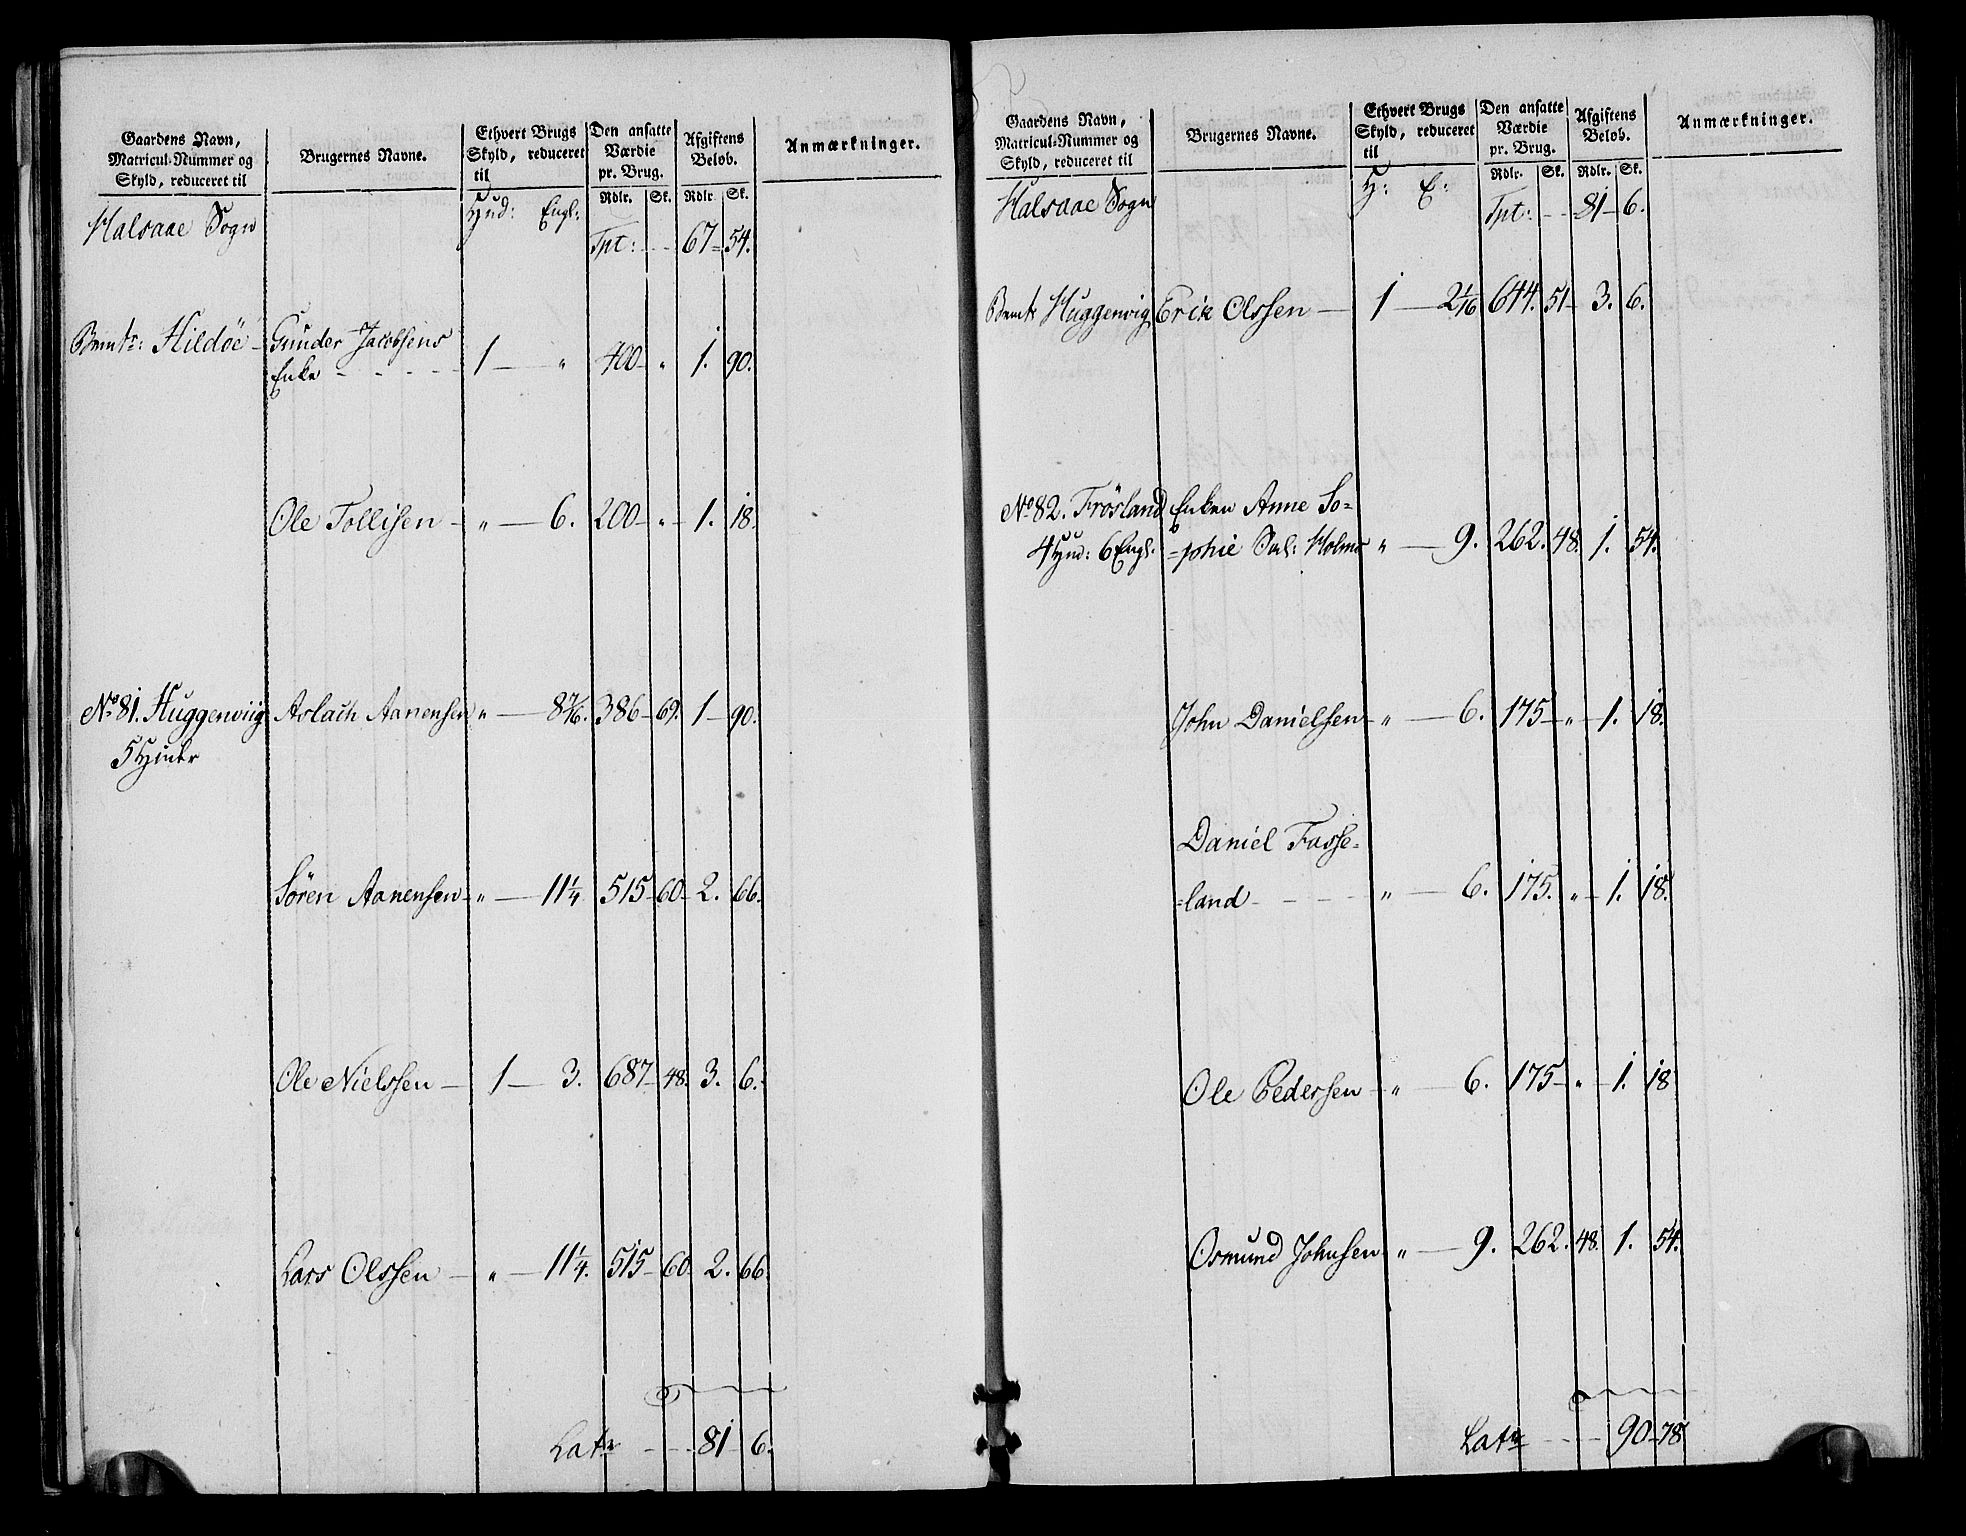 Gaardens Navn,
Matricul-Nummer og
Skyld, reduceret til
Brugernes Navne.
Ethvert Brugs
Skyld, reduceret
til
Den ansatte
Værdie
pr. Brug.
Rdlr. Sk.
Afgiftens
Beløb.
Rdlr. Sk.
Anmærkninger.
Halsaae Sogn
Hud: Engl:
Tpt: - - 67 - 54.
Bemte: Hildöe - Gunder Jacobsens
Enke - - - - - 1 — " 400 - " 1. 90.
Ole Tollisen - " — 6. 200 - " - 1. 18.
No 81. Huggenviig Aslach Aanensen " — 8 7/16. 386 - 69. 1 - 90.
5 Huder
Sören Aanensen - " — 11 1/4 515 - 60 - 2. 66.
Ole Nielssen — 1 — 3. 687 - 48. 3. 6.
Lars Olssen — " — 11 1/4. 515 - 60. 2. 66.
Latr - - - 81 - 6.
Gaardens Navn,
Matricul-Nummer og
Skyld, reduceret til
Brugernes Navne.
Ethvert Brugs
Skyld, reduceret
til
Den ansatte
Værdie
pr. Brug.
Rdlr. Sk.
Afgiftens
Beløb.
Rdlr. Sk.
Anmærkninger.
Halsaae Sogn
H: E:
Tpt: - - 81 - 6.
Bemte Huggenvig Erik Olssen — 1 — 2 1/16 644. 51 - 3. 6.
No 82. Frösland Enken Anne So-
4 Hud: 6 Engl. =phie Sal: Holms " — 9. 262. 48. 1. 54.
John Danielsen - " — 6. 175 - " - 1. 18.
Daniel Fosse-
=land - - - - " — 6. 175. " - 1. 18.
Ole Pedersen - " — 6. 175 - " - 1. 18
Osmund Johnsen " — 9. 262. 48. 1. 54.
Latr - - - 90 - 78